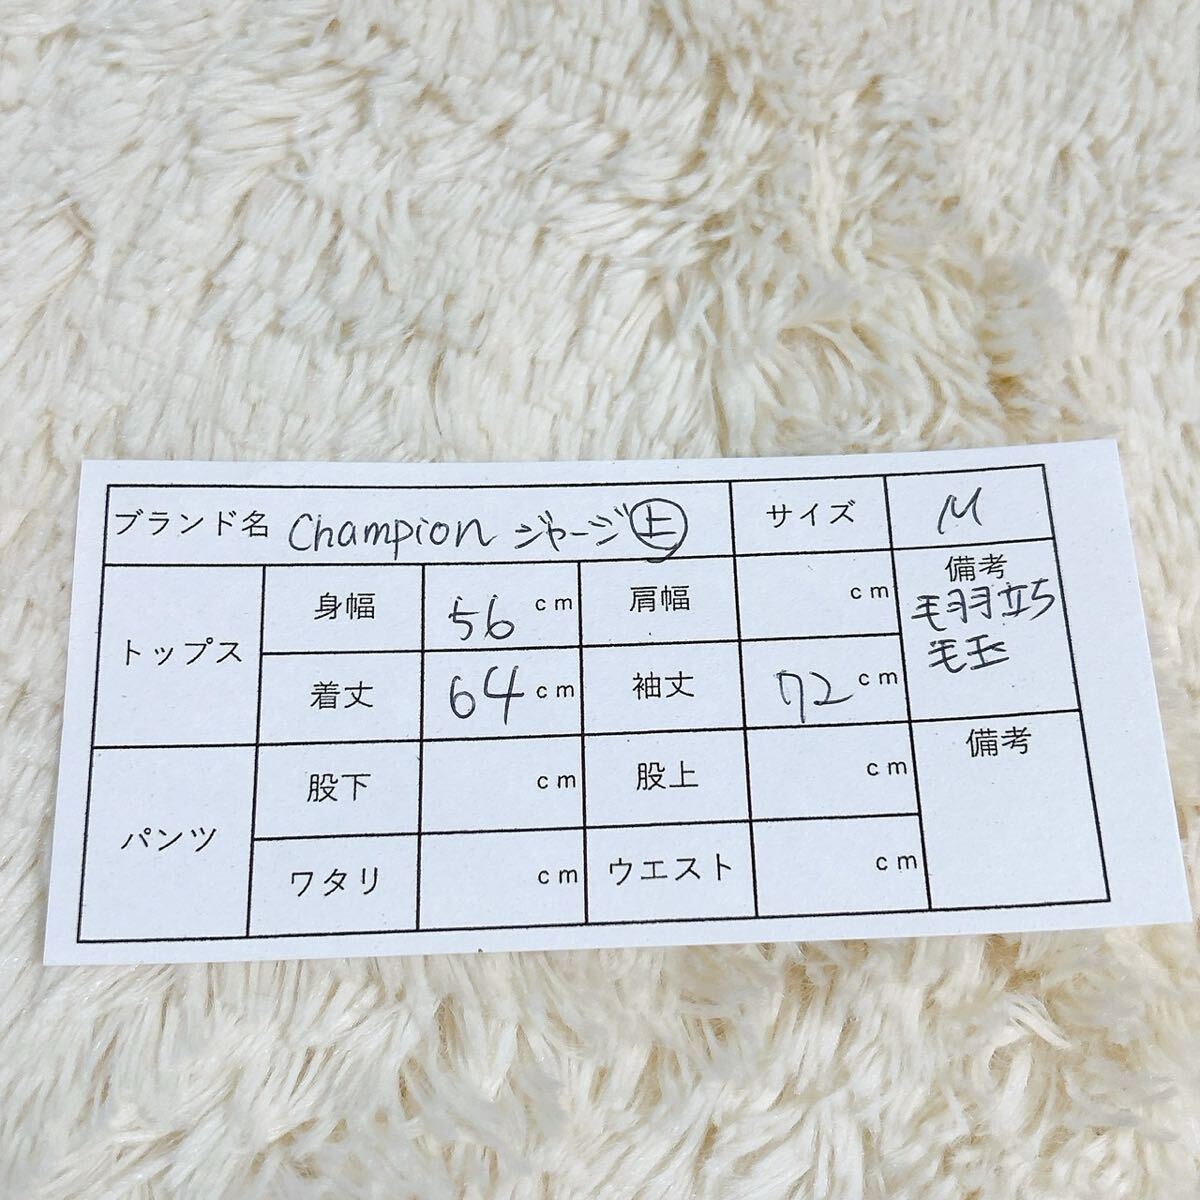 ブランド名 Champion ジャージ㊤ サイズ M
トップス 身幅 56 cm 肩幅 cm 備考
毛羽立ち
毛玉
着丈 64 cm 袖丈 72 cm
パンツ 股下 cm 股上 cm 備考
ワタリ cm ウエスト cm